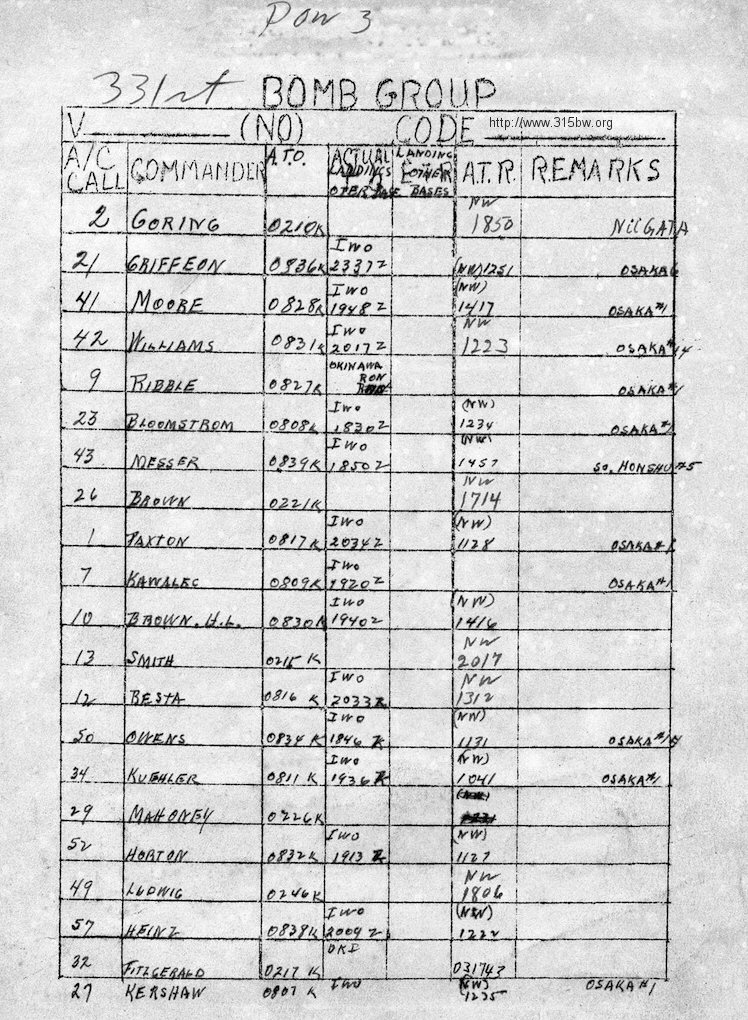 POW 3
331st BOMB GROUP
V (NO) CODE http://www.315bw.org
A/C CALL COMMANDER A.T.O. ACTUAL LANDINGS LANDING OTHER BASES A.T.R. REMARKS
2 GORING 0210K NW 1850 NIIGATA
21 GRIFFEON 0836K IWO 2337Z (NW) 1251 OSAKA
41 MOORE 0828K IWO 1948Z (NW) 1417 OSAKA #1
42 WILLIAMS 0831K IWO 2017Z NW 1223 OSAKA #14
9 RIBBLE 0827K OKINAWA RON OSAKA #1
23 BLOOMSTROM 0808K IWO 1830Z (NW) 1234 OSAKA #1
43 MESSER 0839K IWO 1850Z (NW) 1457 SO. HONSHU #5
26 BROWN 0221K NW 1714
1 PAXTON 0817K IWO 2034Z (NW) 1128 OSAKA #1
7 KAWALEC 0809K IWO 1920Z OSAKA #1
10 BROWN. H.L. 0830K IWO 1940Z (NW) 1416
13 SMITH 0215 K NW 2017
12 BESTA 0816 K IWO 2033Z NW 1312
50 OWENS 0834 K IWO 1846 Z (NW) 1131 OSAKA #14
34 KUEHLER 0811 K IWO 1936 Z (NW) 1041 OSAKA #1
29 MAHONEY 0226K
52 HORTON 0832K IWO 1913 Z (NW) 1127
49 LUDWIG 0246K NW 1806
57 HEINZ 0838K IWO 2009Z (NW) 1222
32 FITZGERALD 0217 K OKI 031743
27 KERSHAW 0807 K IWO (NW) 1235 OSAKA #1